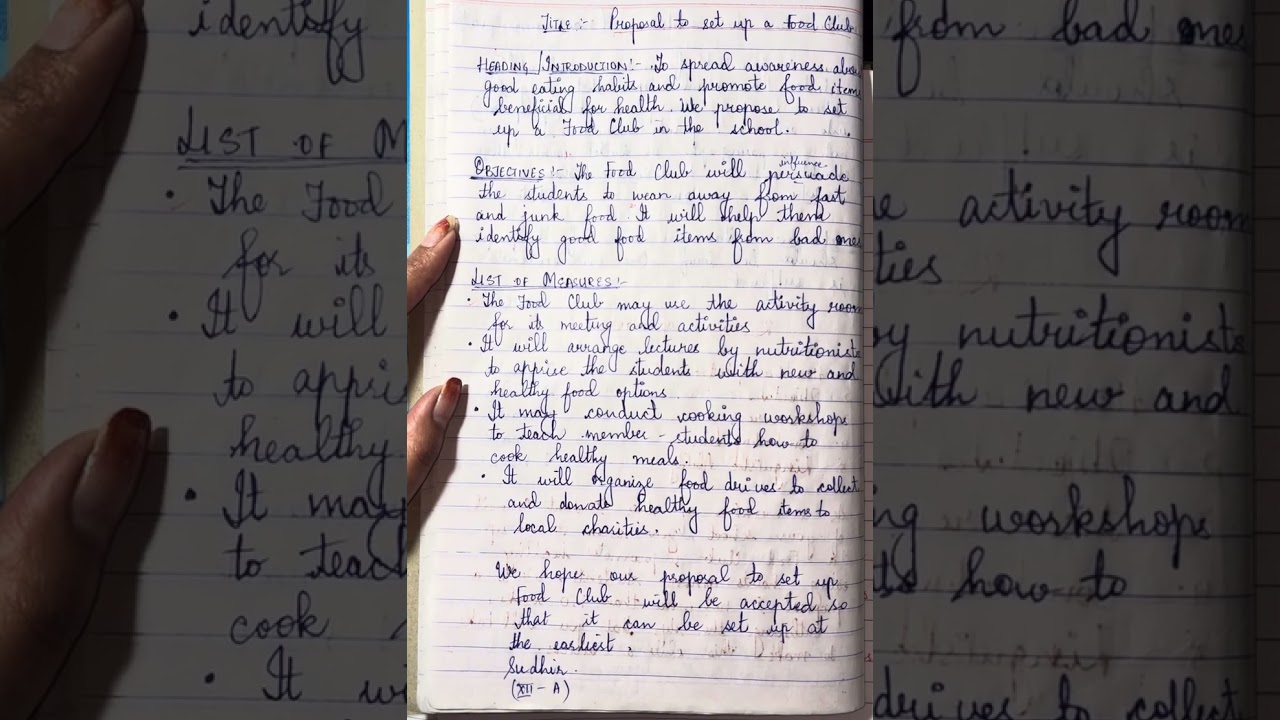 TITLE :- Proposal to set up a Food Club
HEADING/INTRODUCTION:- To spread awareness about
good eating habits and promote food items
beneficial for health We propose to set
up a Food Club in the school.
OBJECTIVES:- The Food Club will persuade
influence
the students to wean away from fast
and junk food It will help them
identify good food items from bad ones
LIST OF MEASURES:-
• The Food Club may use the activity room
for its meeting and activities
• It will arrange lectures by nutritionists
to apprise the students with new and
healthy food options.
• It may conduct cooking workshops
to teach member-students how to
cook healthy meals.
• It will organize food drives to collect
and donate healthy food items to
local charities.
We hope our proposal to set up
Food Club will be accepted so
that it can be set up at
the earliest.
Sudhir.
(XII-A)